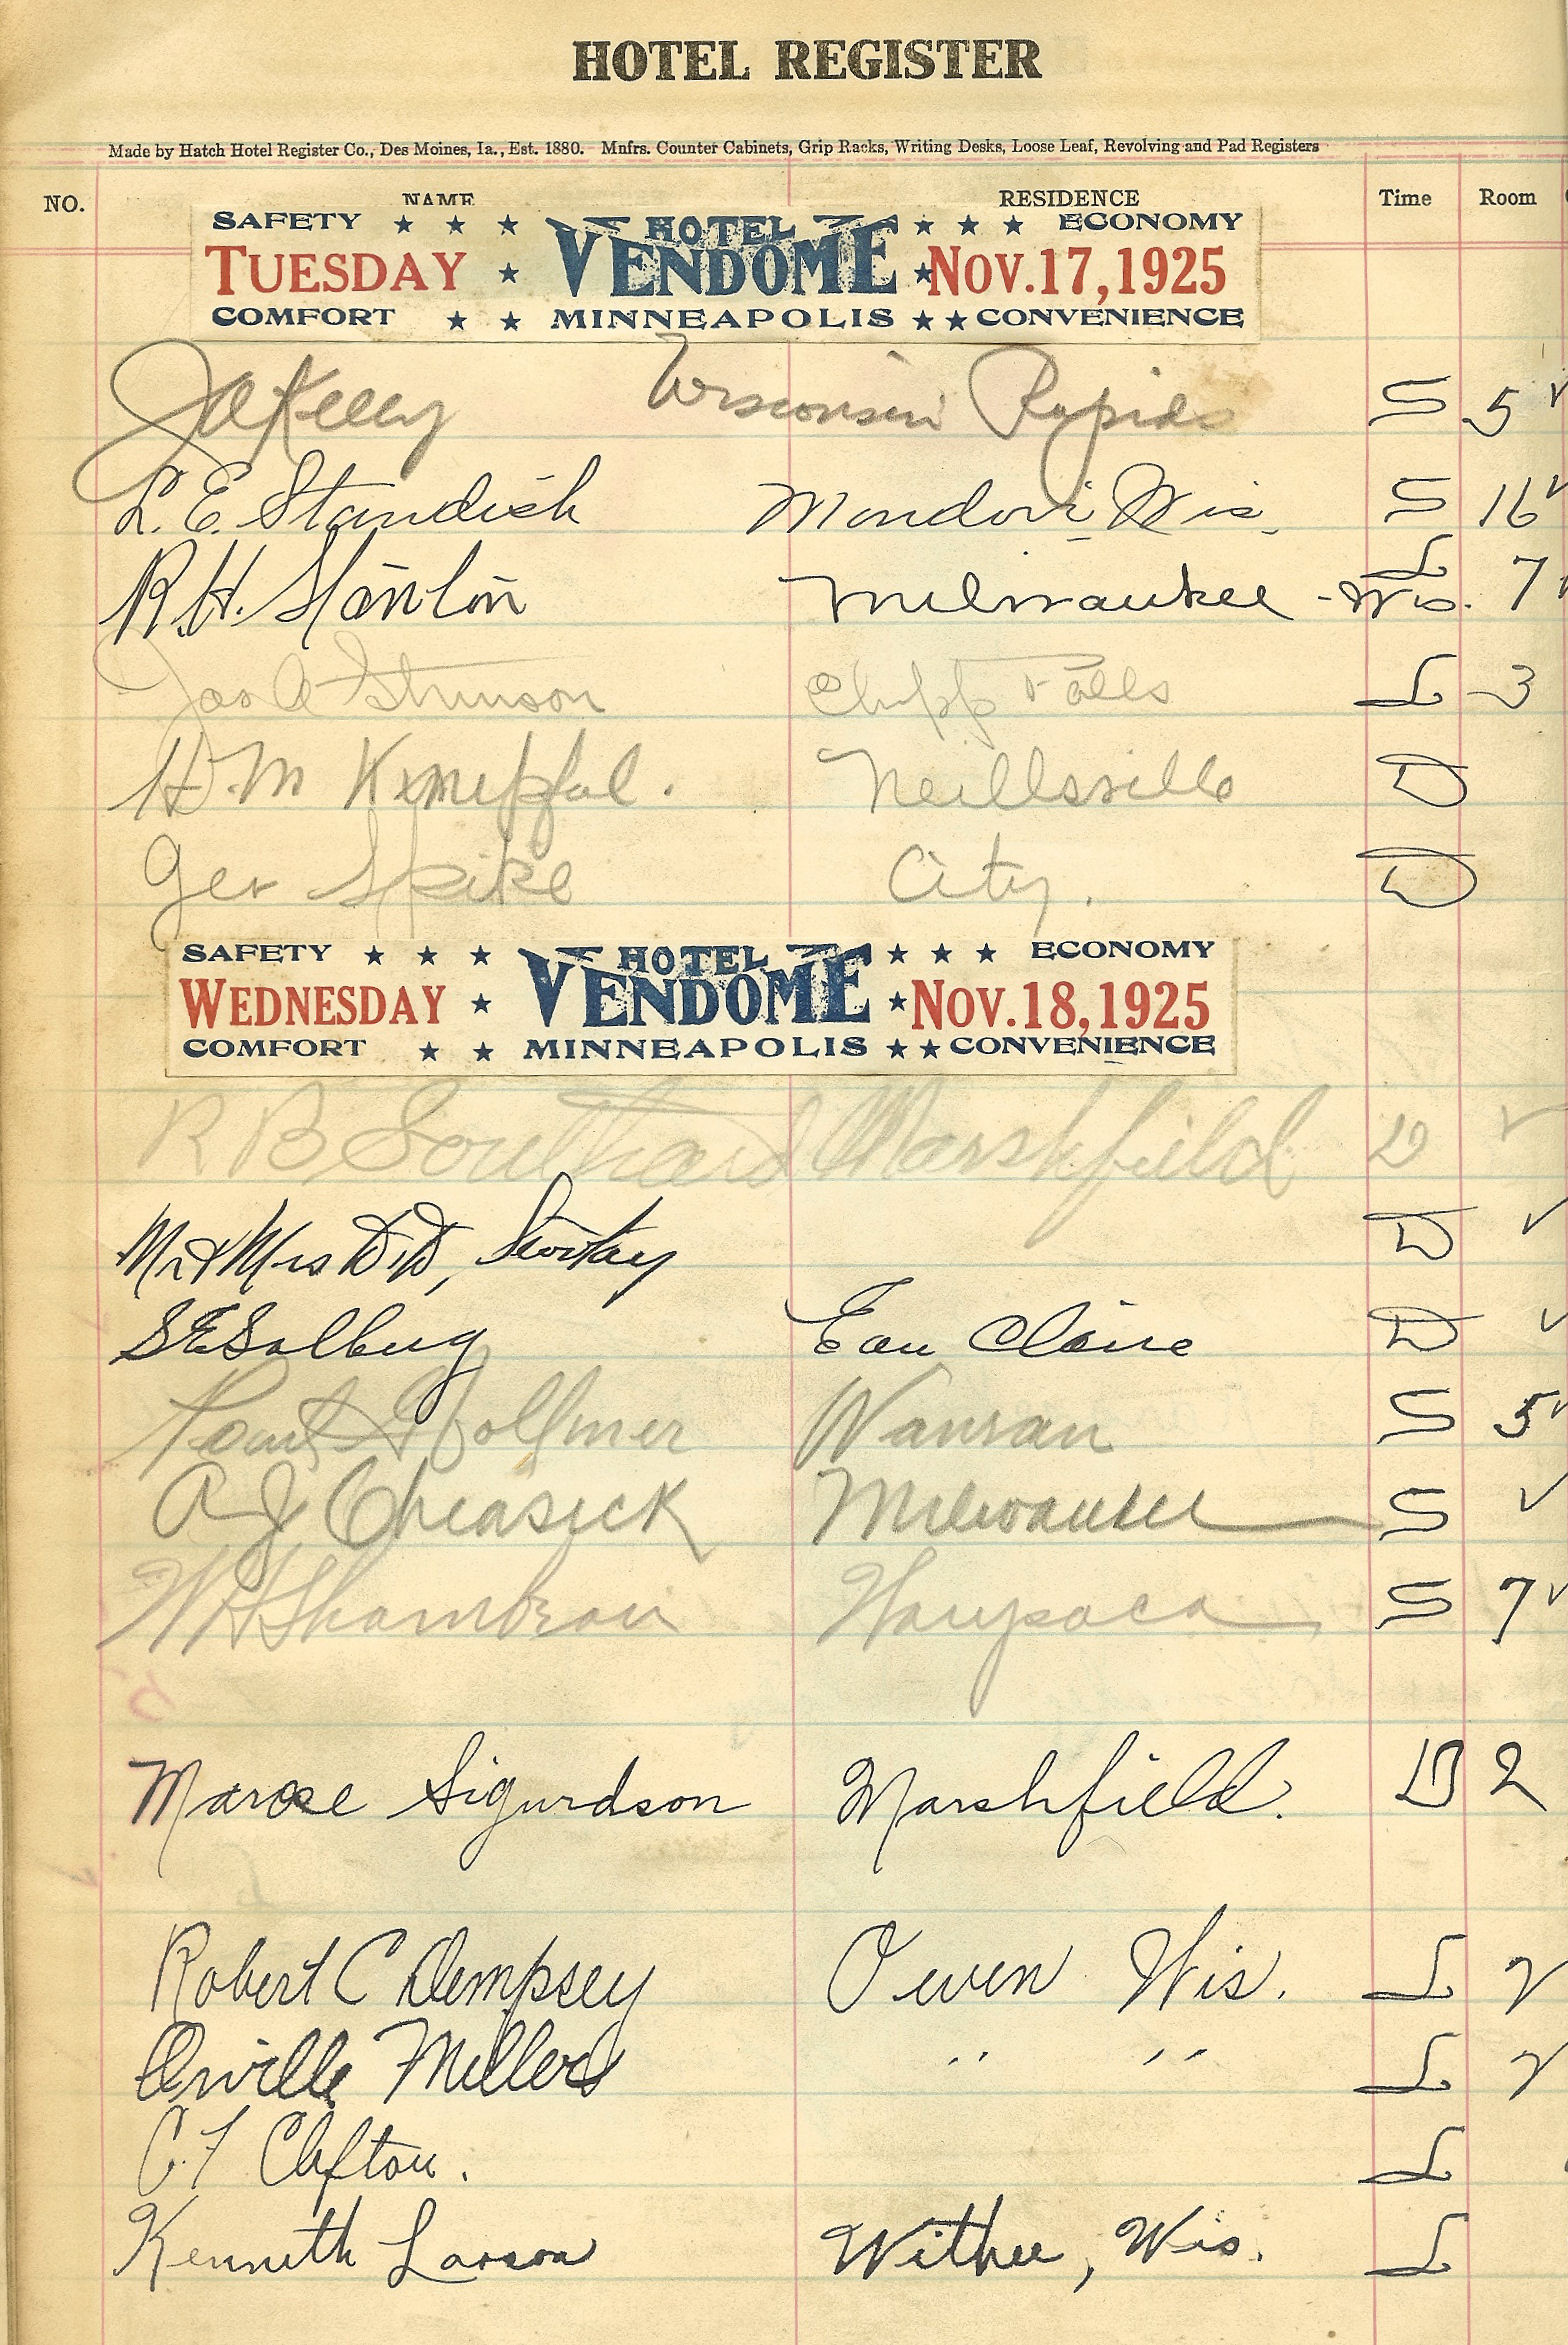 HOTEL REGISTER
Made by Hatch Hotel Register Co., Des Moines, Ia., Est. 1880. Mnfrs. Counter Cabinets, Grip Racks, Writing Desks, Loose Leaf, Revolving and Pad Registers
NO. NAME RESIDENCE Time Room
SAFETY ★ ★ ★ HOTEL ★ ★ ★ ECONOMY
TUESDAY ★ VENDOME ★ NOV. 17, 1925
COMFORT ★ ★ MINNEAPOLIS ★ ★ CONVENIENCE
J A Kelly Wisconsin Rapids S 5 ✓
L. E. Standish Mondovi Wis. S 16 ✓
R. H. Stanton Milwaukee - Wis. L 7
Jas A Stinson Chipp Falls L 3
H. M Neillsville D
Geo Spike City. D
SAFETY ★ ★ ★ HOTEL ★ ★ ★ ECONOMY
WEDNESDAY ★ VENDOME ★ NOV. 18, 1925
COMFORT ★ ★ MINNEAPOLIS ★ ★ CONVENIENCE
R B Southard Marshfield D ✓
Mr & Mrs D ✓
S E Solberg Eau Claire D ✓
Paul Vollmer Wausau S 5 ✓
A J Cheasick Milwaukee S ✓
W H Shambeau Waupaca S 7 ✓
Sigurdson Marshfield. D 2
Robert C Dempsey Owen Wis. L 2
Orville Millard " " L 2
C. F Clifton. L
Kenneth Larson Withee, Wis. L